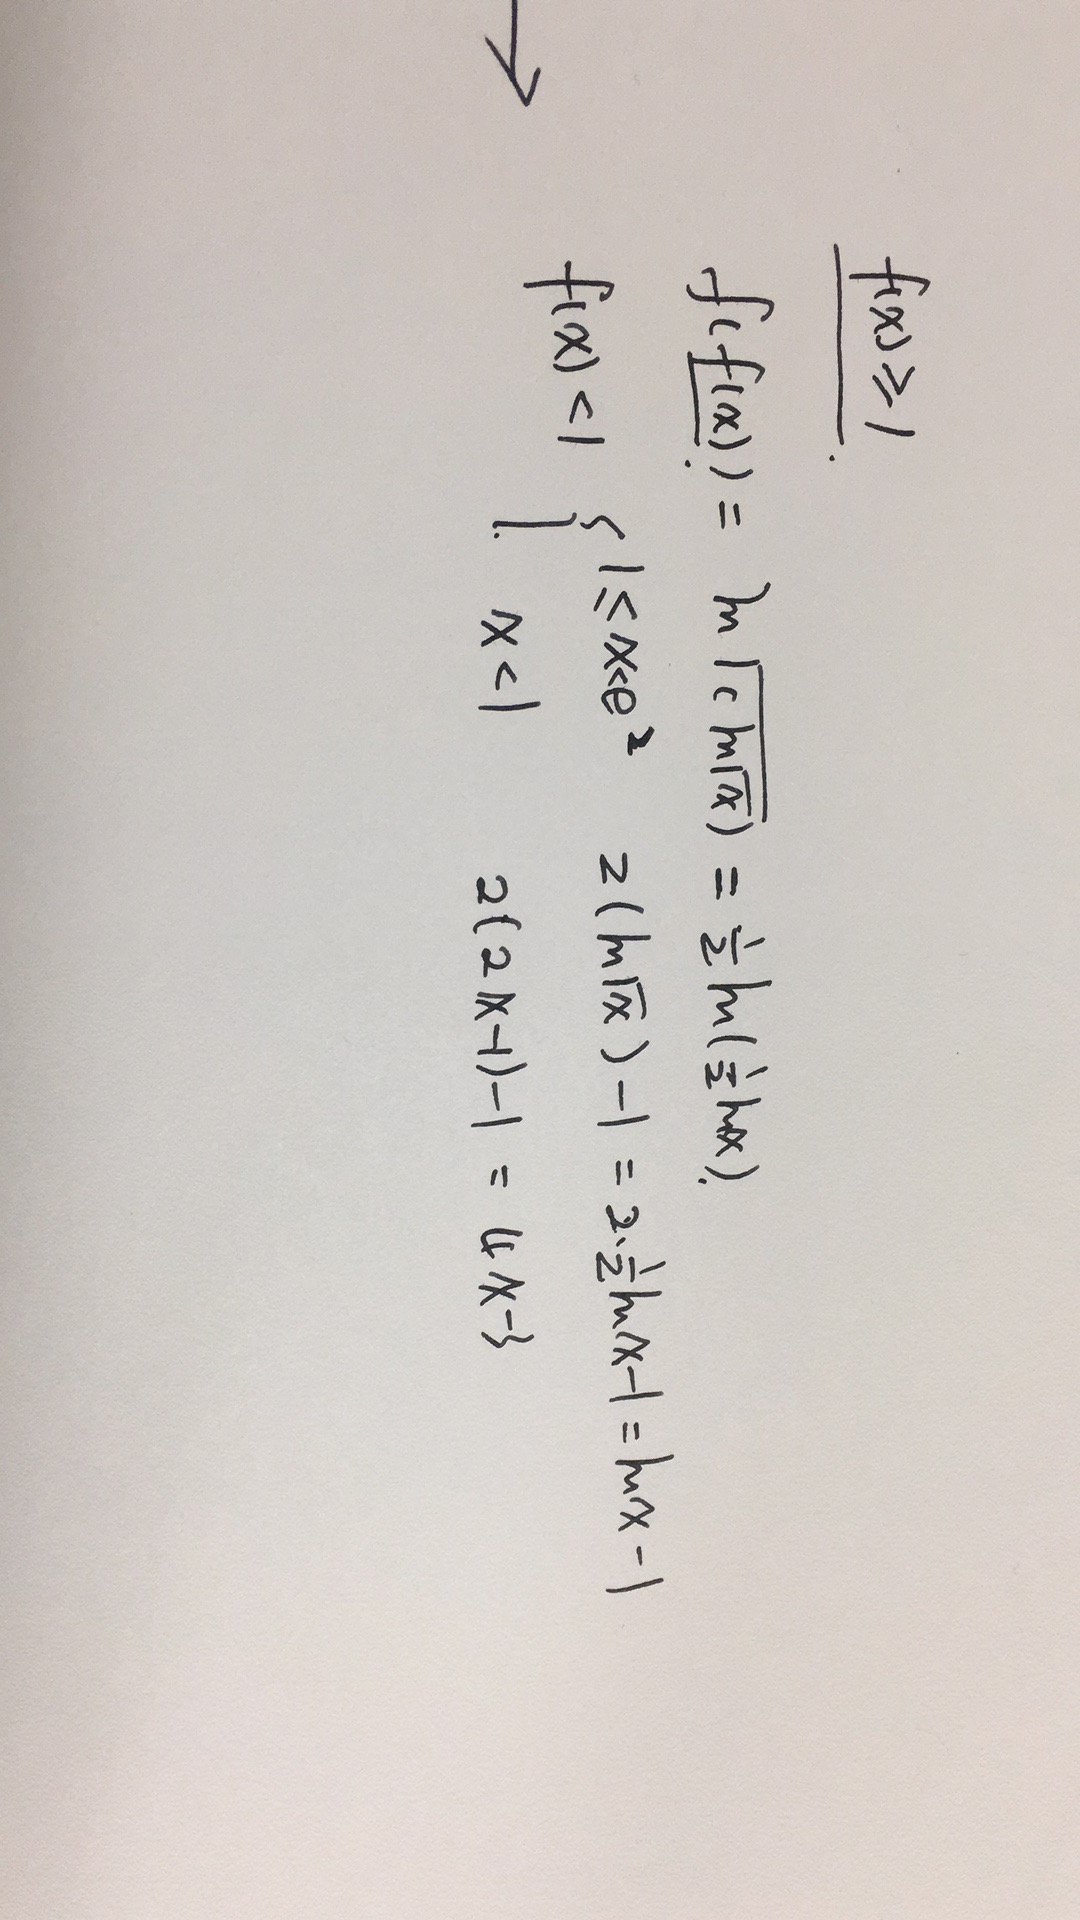 f(x)≥1
f(f(x)) = ln√(ln√x) = ½ln(½lnx).
f(x)<1 { 1≤x<e² 2(ln√x)-1 = 2·½lnx-1 = lnx-1
x<1 2(2x-1)-1 = 4x-3